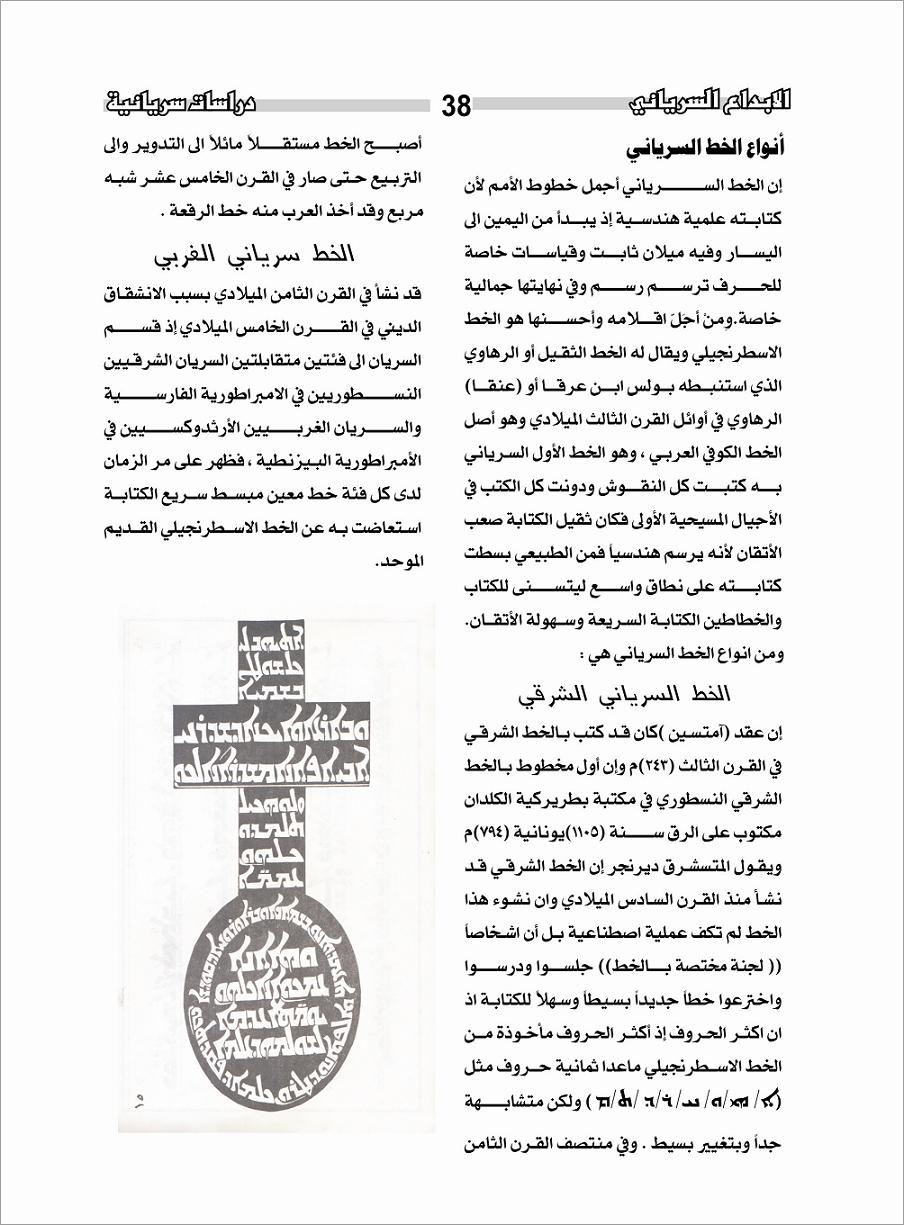 الابداع السرياني
38
دراسات سريانية
أنواع الخط السرياني
إن الخط السرياني أجمل خطوط الأمم لأن
كتابته علمية هندسية إذ يبدأ من اليمين الى
اليسار وفيه ميلان ثابت وقياسات خاصة
للحرف ترسم رسم وفي نهايتها جمالية
خاصة.ومنْ أجلَ اقلامه وأحسنها هو الخط
الاسطرنجيلي ويقال له الخط الثقيل أو الرهاوي
الذي استنبطه بولس ابن عرقا أو (عنقا)
الرهاوي في أوائل القرن الثالث الميلادي وهو أصل
الخط الكوفي العربي ، وهو الخط الأول السرياني
به كتبت كل النقوش ودونت كل الكتب في
الأجيال المسيحية الأولى فكان ثقيل الكتابة صعب
الأتقان لأنه يرسم هندسياً فمن الطبيعي بسطت
كتابته على نطاق واسع ليتسنى للكتاب
والخطاطين الكتابة السريعة وسهولة الأتقان.
ومن انواع الخط السرياني هي :
الخط السرياني الشرقي
إن عقد (آمتسين )كان قد كتب بالخط الشرقي
في القرن الثالث (٢٤٣)م وإن أول مخطوط بالخط
الشرقي النسطوري في مكتبة بطريركية الكلدان
مكتوب على الرق سنة (١١٠٥)يونانية (٧٩٤)م
ويقول المتسشرق ديرنجر إن الخط الشرقي قد
نشأ منذ القرن السادس الميلادي وان نشوء هذا
الخط لم تكف عملية اصطناعية بل أن اشخاصاً
(( لجنة مختصة بالخط)) جلسوا ودرسوا
واخترعوا خطاً جديداً بسيطاً وسهلاً للكتابة اذ
ان اكثر الحروف إذ أكثر الحروف مأخوذة من
الخط الاسطرنجيلي ماعدا ثمانية حروف مثل
) ولكن متشابهة
جداً وبتغيير بسيط . وفي منتصف القرن الثامن
أصبح الخط مستقلاً مائلاً الى التدوير والى
التربيع حتى صار في القرن الخامس عشر شبه
مربع وقد أخذ العرب منه خط الرقعة .
الخط سرياني الغربي
قد نشأ في القرن الثامن الميلادي بسبب الانشقاق
الديني في القرن الخامس الميلادي إذ قسم
السريان الى فئتين متقابلتين السريان الشرقيين
النسطوريين في الامبراطورية الفارسية
والسريان الغربيين الأرثدوكسيين في
الأمبراطورية البيزنطية ، فظهر على مر الزمان
لدى كل فئة خط معين مبسط سريع الكتابة
استعاضت به عن الخط الاسطرنجيلي القديم
الموحد.
١٥